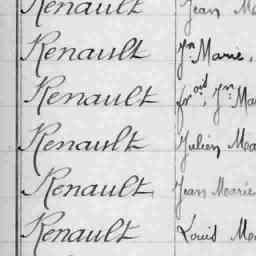 Renault Jean Ma
Renault Jn Marie,
Renault frois, Jn Ma
Renault Julien Ma
Renault Jean Marie
Renault Louis Ma